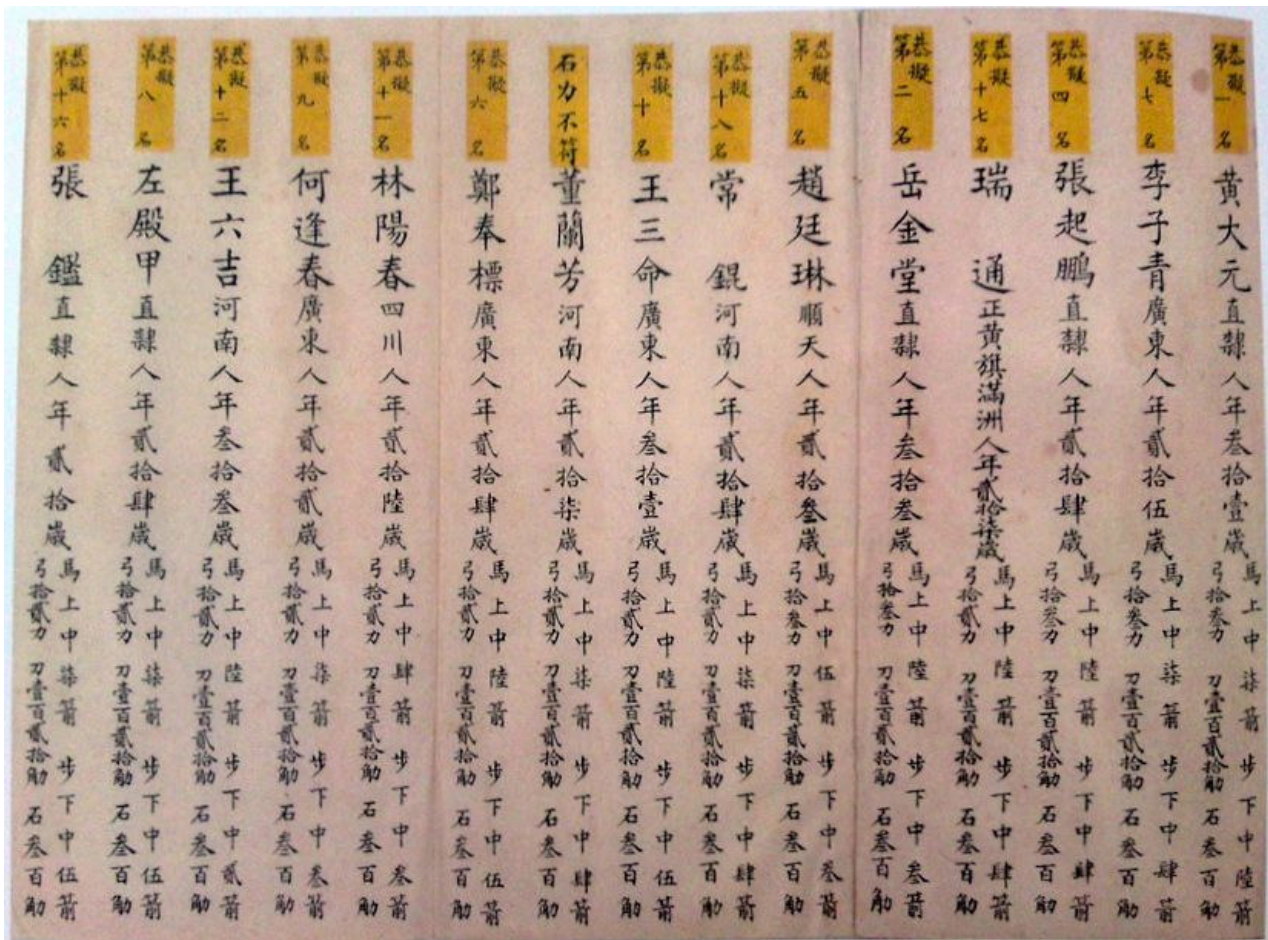 恭擬第一名
黃大元直隸人年叁拾壹歲
馬上中柒箭步下中陸箭
弓拾叁力刀壹百貳拾觔石叁百觔
恭擬第七名
李子青廣東人年貳拾伍歲
馬上中柒箭步下中肆箭
弓拾叁力刀壹百貳拾觔石叁百觔
恭擬第四名
張起鵬直隸人年貳拾肆歲
馬上中陸箭步下中肆箭
弓拾叁力刀壹百貳拾觔石叁百觔
恭擬第十七名
瑞通正黃旗滿洲人年貳拾柒歲
馬上中陸箭步下中肆箭
弓拾貳力刀壹百貳拾觔石叁百觔
恭擬第二名
岳金堂直隸人年叁拾叁歲
馬上中陸箭步下中叁箭
弓拾叁力刀壹百貳拾觔石叁百觔
恭擬第五名
趙廷琳順天人年貳拾叁歲
馬上中伍箭步下中叁箭
弓拾叁力刀壹百貳拾觔石叁百觔
恭擬第十八名
常錕河南人年貳拾肆歲
馬上中柒箭步下中肆箭
弓拾貳力刀壹百貳拾觔石叁百觔
恭擬第十名
王三命廣東人年叁拾壹歲
馬上中陸箭步下中伍箭
弓拾貳力刀壹百貳拾觔石叁百觔
石力不符
董蘭芳河南人年貳拾柒歲
馬上中柒箭步下中肆箭
弓拾貳力刀壹百貳拾觔石叁百觔
恭擬第六名
鄭奉標廣東人年貳拾肆歲
馬上中陸箭步下中伍箭
弓拾貳力刀壹百貳拾觔石叁百觔
恭擬第十一名
林陽春四川人年貳拾陸歲
馬上中肆箭步下中叁箭
弓拾貳力刀壹百貳拾觔石叁百觔
恭擬第九名
何逢春廣東人年貳拾貳歲
馬上中柒箭步下中叁箭
弓拾貳力刀壹百貳拾觔石叁百觔
恭擬第十二名
王六吉河南人年叁拾叁歲
馬上中陸箭步下中貳箭
弓拾貳力刀壹百貳拾觔石叁百觔
恭擬第八名
左殿甲直隸人年貳拾肆歲
馬上中柒箭步下中伍箭
弓拾貳力刀壹百貳拾觔石叁百觔
恭擬第十六名
張鑑直隸人年貳拾歲
馬上中柒箭步下中伍箭
弓拾貳力刀壹百貳拾觔石叁百觔